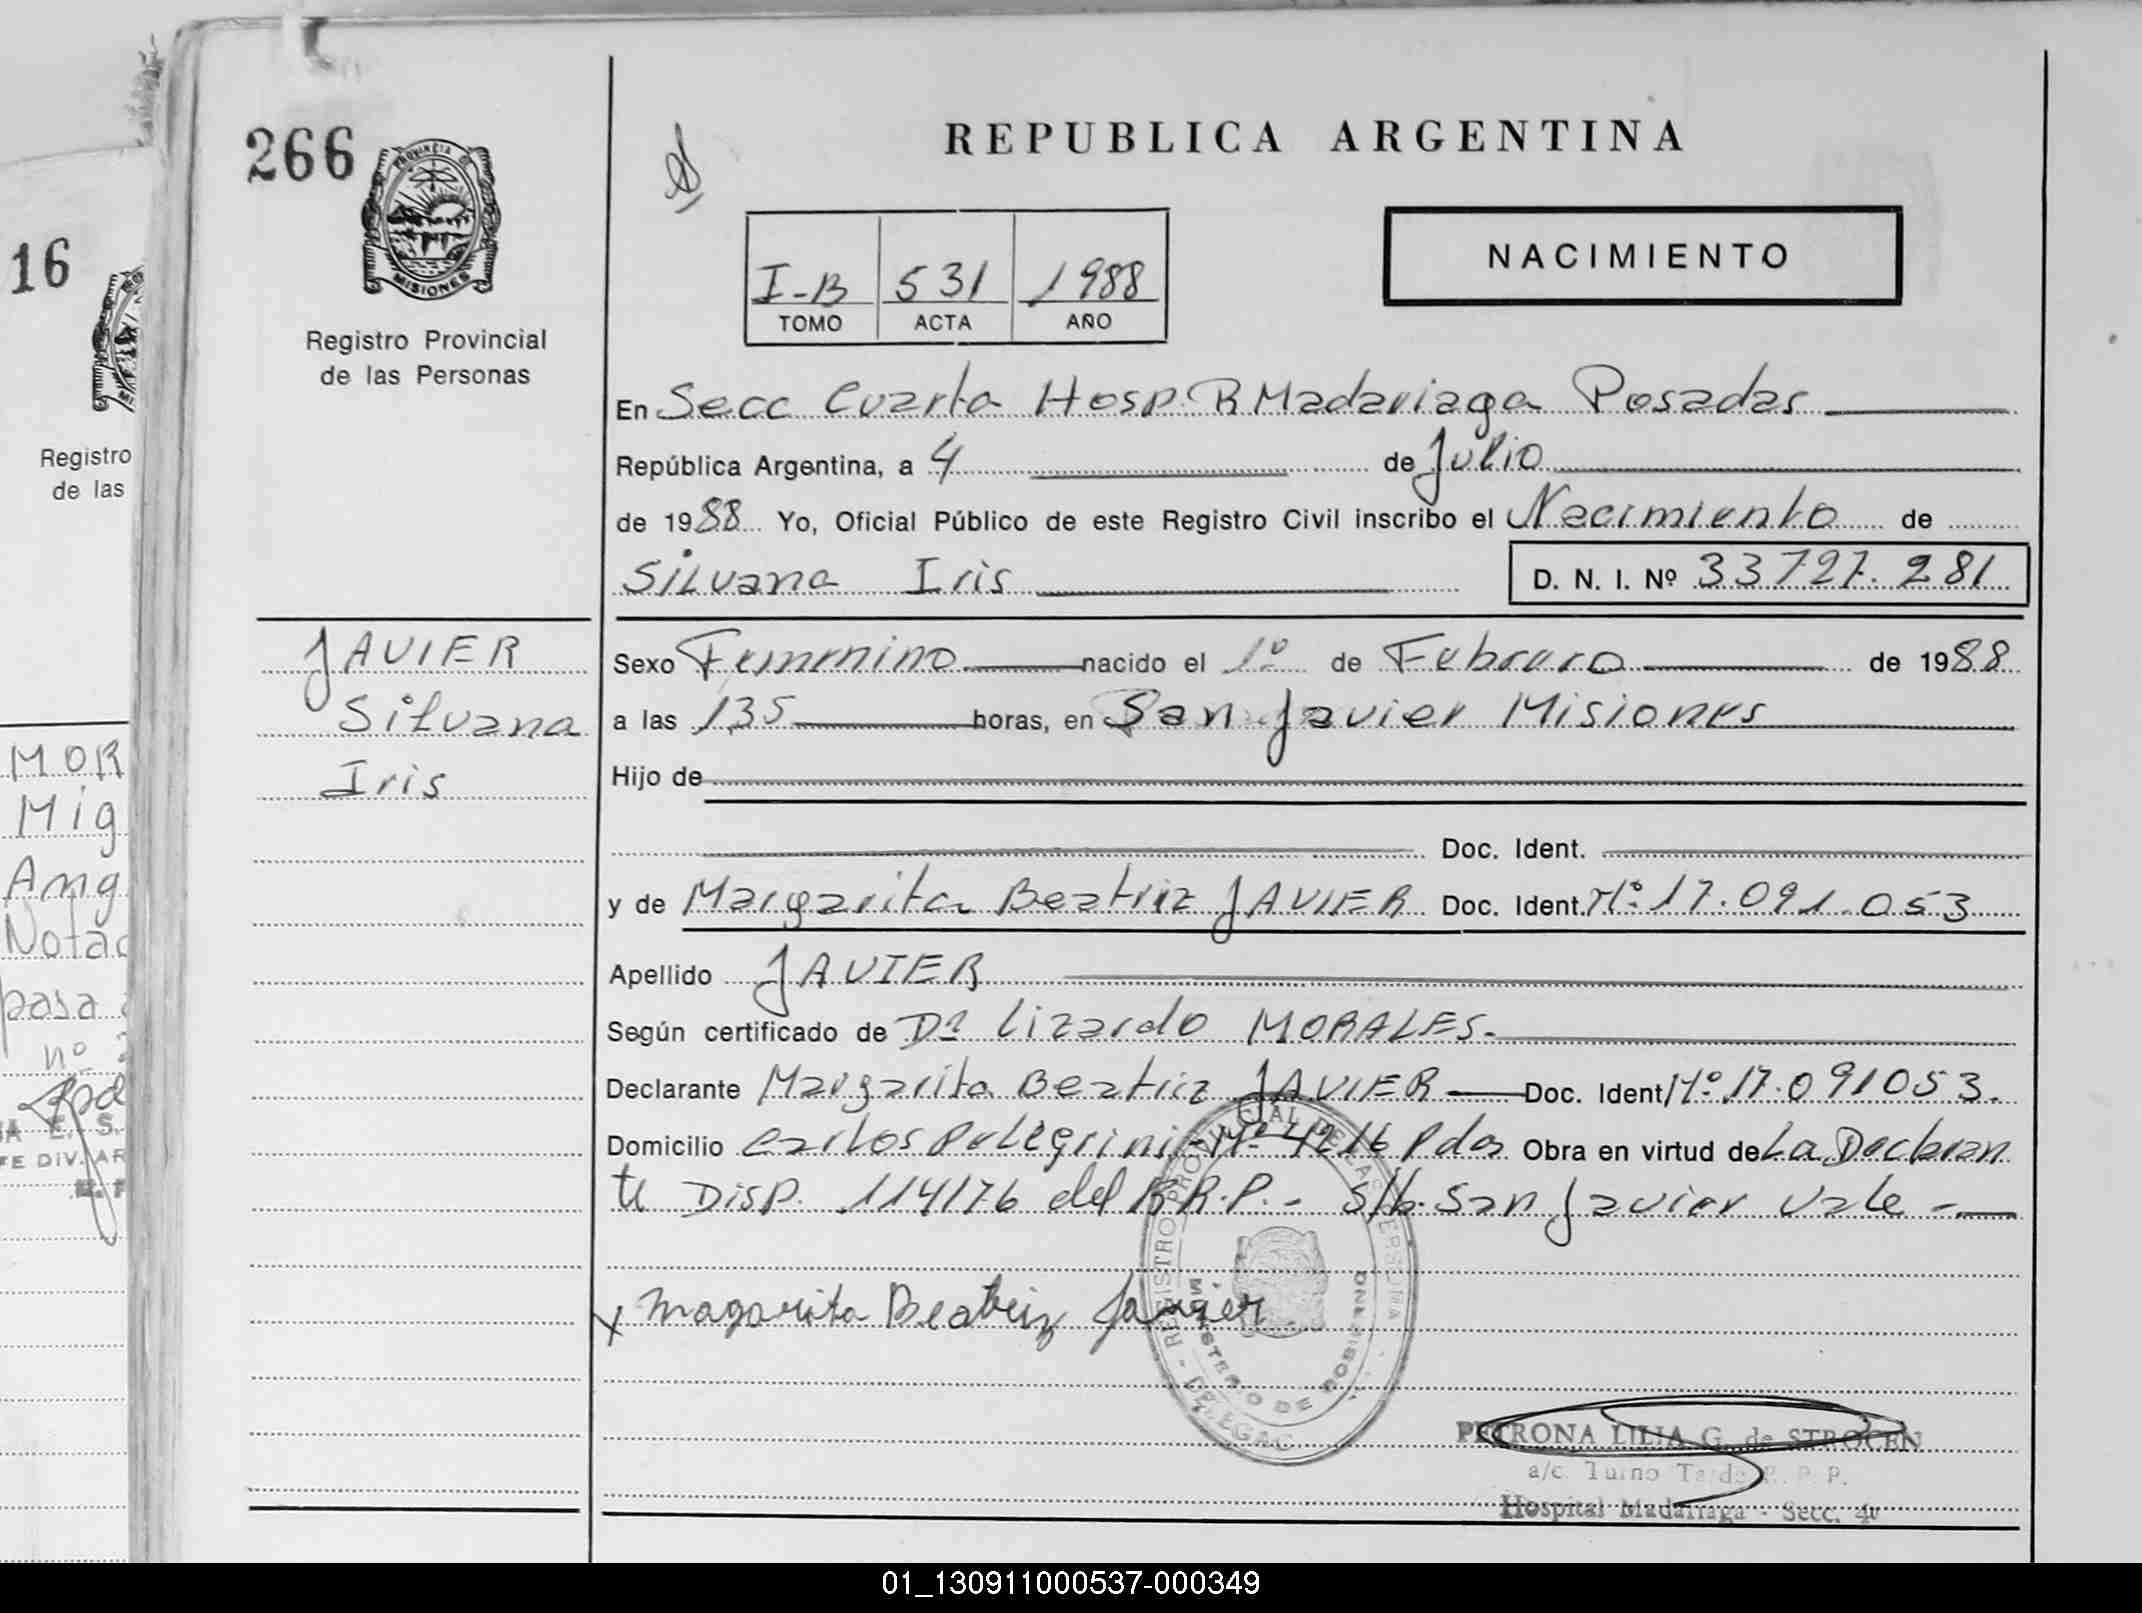 266
PROVINCIA D
MISIONES
Registro Provincial
de las Personas
REPUBLICA ARGENTINA
NACIMIENTO
I-B 531 1988
TOMO ACTA AÑO
En Secc Cuarta Hosp. R Madariaga Posadas
República Argentina, a 4 de Julio
de 1988 Yo, Oficial Público de este Registro Civil inscribo el Nacimiento de
Silvana Iris D. N. I. Nº 33727.281
JAVIER
Silvana
Iris
Sexo Femenino nacido el 1º de Febrero de 1988
a las 1,35 horas, en San Javier Misiones
Hijo de
Doc. Ident.
y de Margarita Beatriz JAVIER Doc. Ident. Nº 17.091.053
Apellido JAVIER
Según certificado de Dr Lizardo MORALES.
Declarante Margarita Beatriz JAVIER Doc. Ident Nº 17.091053.
Domicilio Carlos Pelegrini Nº 4216 Pdas Obra en virtud de La Declaran
te Disp. 114/76 del R.R.P. - S/b. San Javier Vale -
x Magarita Beatriz Javier
REGISTRO PROVINCIAL DE LAS PERSONAS
MINISTERIO DE GOBIERNO
DELEGAC
PETRONA LILIA G. de STROCEN
a/c. Turno Tarde R. P. P.
Hospital Madariaga - Secc. 4º
16
Registro
de las
MOR
Mig
Ang
Notac
pasa
nº
E. S.
FE DIV. AR
01_130911000537-000349